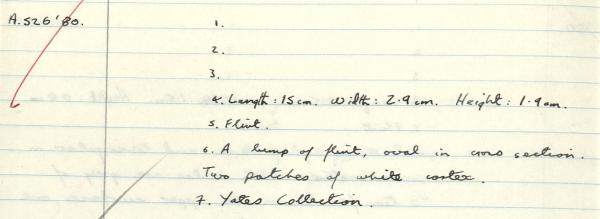 A.526'80. 1.
2.
3.
4. Length : 15cm. Width : 2.9cm. Height : 1.9cm.
5. Flint.
6. A lump of flint, oval in cross section.
Two patches of white cortex.
7. Yates Collection.